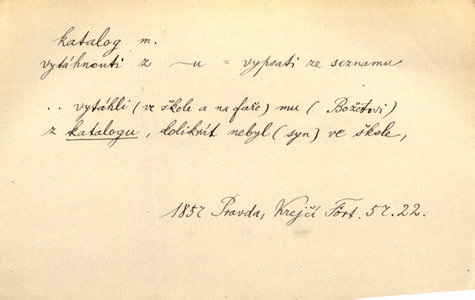 katalog m.
vytáhnouti z ~u = vypsati ze seznamu
.. vytáhli (ve škole a na faře) mu (Božetovi)
z katalogu, kolikrát nebyl (syn) ve škole,
1857 Pravda, Krejčí Fört. 57.22.